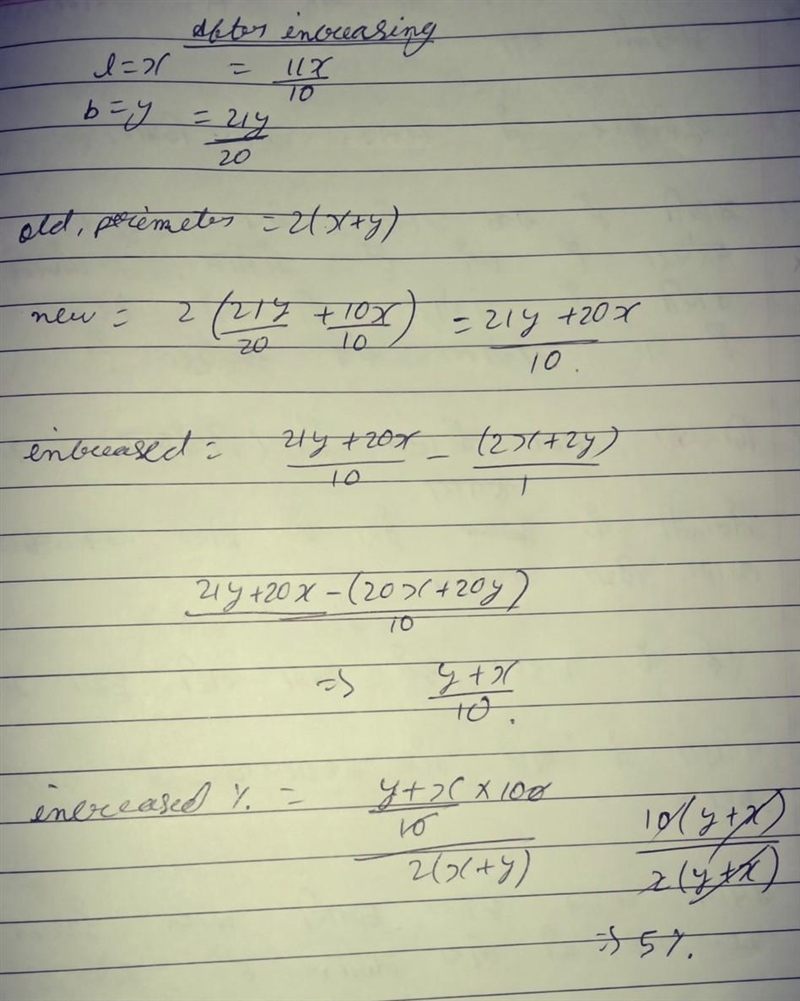 After increasing
l = x = 11x/10
b = y = 21y/20
old, perimeter = 2(x+y)
new = 2 (21y/20 + 10x/10) = 21y + 20x/10.
increased = 21y + 20x/10 - (2x+2y)/1
21y+20x - (20x+20y)/10
=> y+x/10.
increased % = y+x/10 × 100/2(x+y) 10(y+x)/2(y+x)
=> 5%.